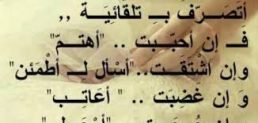 أتصرّف بـ تلقائيّة ,,
فـ إن احبّبت .. "أهتمّ"
وإن اشتقت.. "أسأل لـ أطمئن"
و إن غضبت .. " أعاتب"